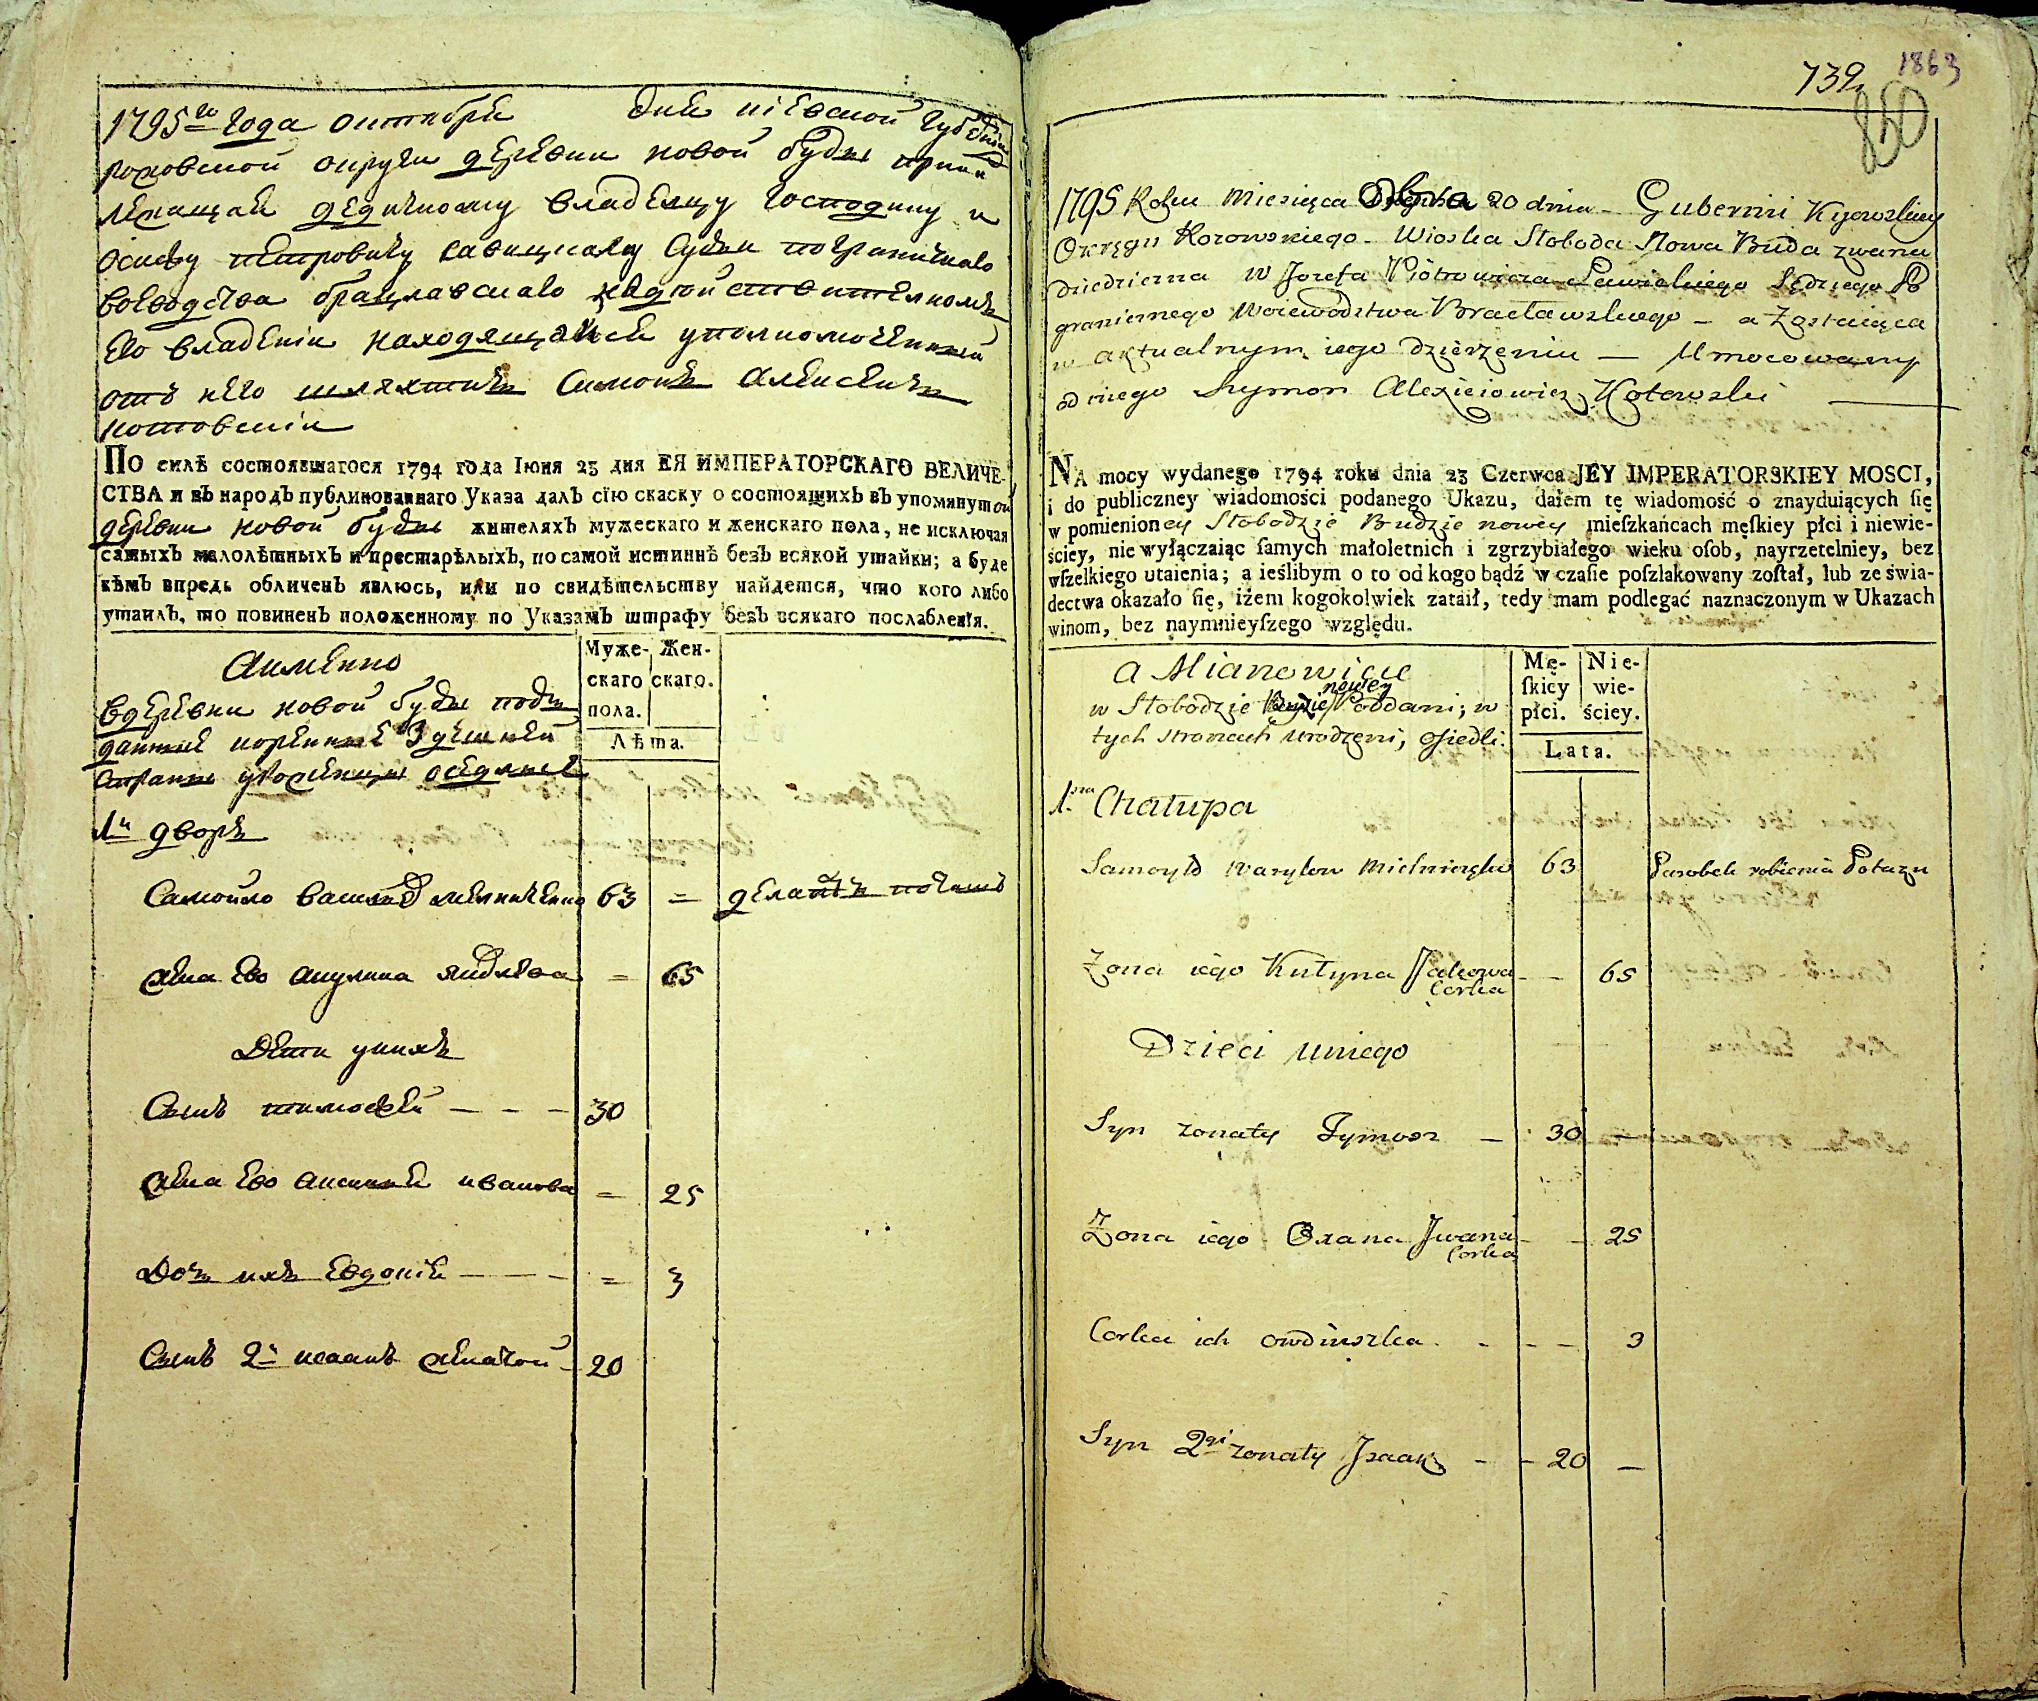 1795го года октября дня киевской губернии
роховской округи деревни новой буды прина
лежащей дедичному владельцу господину и
осипу петровичу савицкому судьи пограничнаго
воеводства брацлавскаго
ево владении находящейся уполномоченный
отъ него шляхтичь Симонъ Алексеевичь
котовский
По силѣ состоявшагося 1794 года Іюня 23 дня ЕЯ ИМПЕРАТОРСКАГО ВЕЛИЧЕ-
СТВА и въ народъ публикованнаго Указа далъ сїю скаску о состоящихъ въ упомянутой
деревни новой буды жителяхъ мужескаго и женскаго пола, не исключая
самыхъ малолѣтныхъ и престарѣлыхъ, по самой истиннѣ безъ всякой утайки; а буде
кѣмъ впредь обличенъ явлюсь, или по свидѣтельству найдется, что кого либо
утаилъ, то повиненъ положенному по Указамъ штрафу безъ всякаго послабленія.
Аименно
вдеревни новой буды подъ
данные коренные Здешней
страны урожденцы оседлые
Муже-
скаго
пола.
Жен-
скаго.
Лѣта.
1й дворъ
Самойло Василевъ мельниченко 63 = делатель поташъ
жена ево акулина яковлева = 65
Дети унихъ
Сынъ тимофей - - - 30
жена ево аксинья иванова = 25
Дочь ихъ Евдокия - - - = 3
Сынъ 2й исаакъ женатой - 20
739
1863
850
1795 Roku Miesięca 20 dnia - Gubernii Kijowskiey
Okręgu Korowskiego - Wioska Słoboda Nowa Buda zwana
dziedziczna W Jozefa Piotrowicza Sawickiego Sędziego Po
granicznego Woiewodztwa Bracławskiego - a Zostaiąca
w aktualnym iego dzierzeniu - Umocowany
od niego Szymon Alexieiowicz Kotowski
NA mocy wydanego 1794 roku dnia 23 Czerwca JEY IMPERATORSKIEY MOSCI,
i do publiczney wiadomości podanego Ukazu, dałem tę wiadomość o znayduiących ſię
w pomienioney Słobodzie Budzie nowey mieſzkańcach męſkiey płci i niewie-
ściey, nie wyłączaiąc ſamych małoletnich i zgrzybiałego wieku oſob, nayrzetelniey, bez
wſzelkiego utaienia; a ieślibym o to od kogo bądź w czaſie poſzlakowany zoſtał, lub ze świa-
dectwa okazało ſię, iżem kogokolwiek zataił, tedy mam podlegać naznaczonym w Ukazach
winom, bez naymnieyſzego względu.
a Mianowicie
w Słobodzie Budzie nowey Poddani; w
tych stronach urodzeni, osiedli.
Mę-
ſkiey
płci.
Nie-
wie-
ściey.
Lata.
1sza Chałupa
Samoyło Wasylow Mielniczęko 63 Parobek robienia Potaszu
Zona iego Kulyna Jakowa Corka - - 65
Dzieci uniego
Syn zonaty Tymosz - 30 -
Zona iego Oxana Iwana Corka - - 25
Corka ich owdiuszka - - - 3
Syn 2gi zonaty Isaak - - 20 -